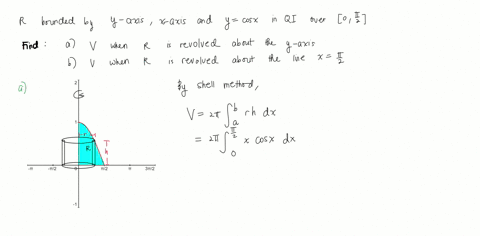 R bounded by y-axis, x-axis and y = cosx in QI over [0, π/2]
Find: a) V when R is revolved about the y-axis
b) V when R is revolved about the line x = π/2
a)
By shell method,
V = 2π ∫_a^b rh dx
= 2π ∫_0^{π/2} x cosx dx
r
R
h
2
1
-1
-π -π/2 0 π/2 π 3π/2